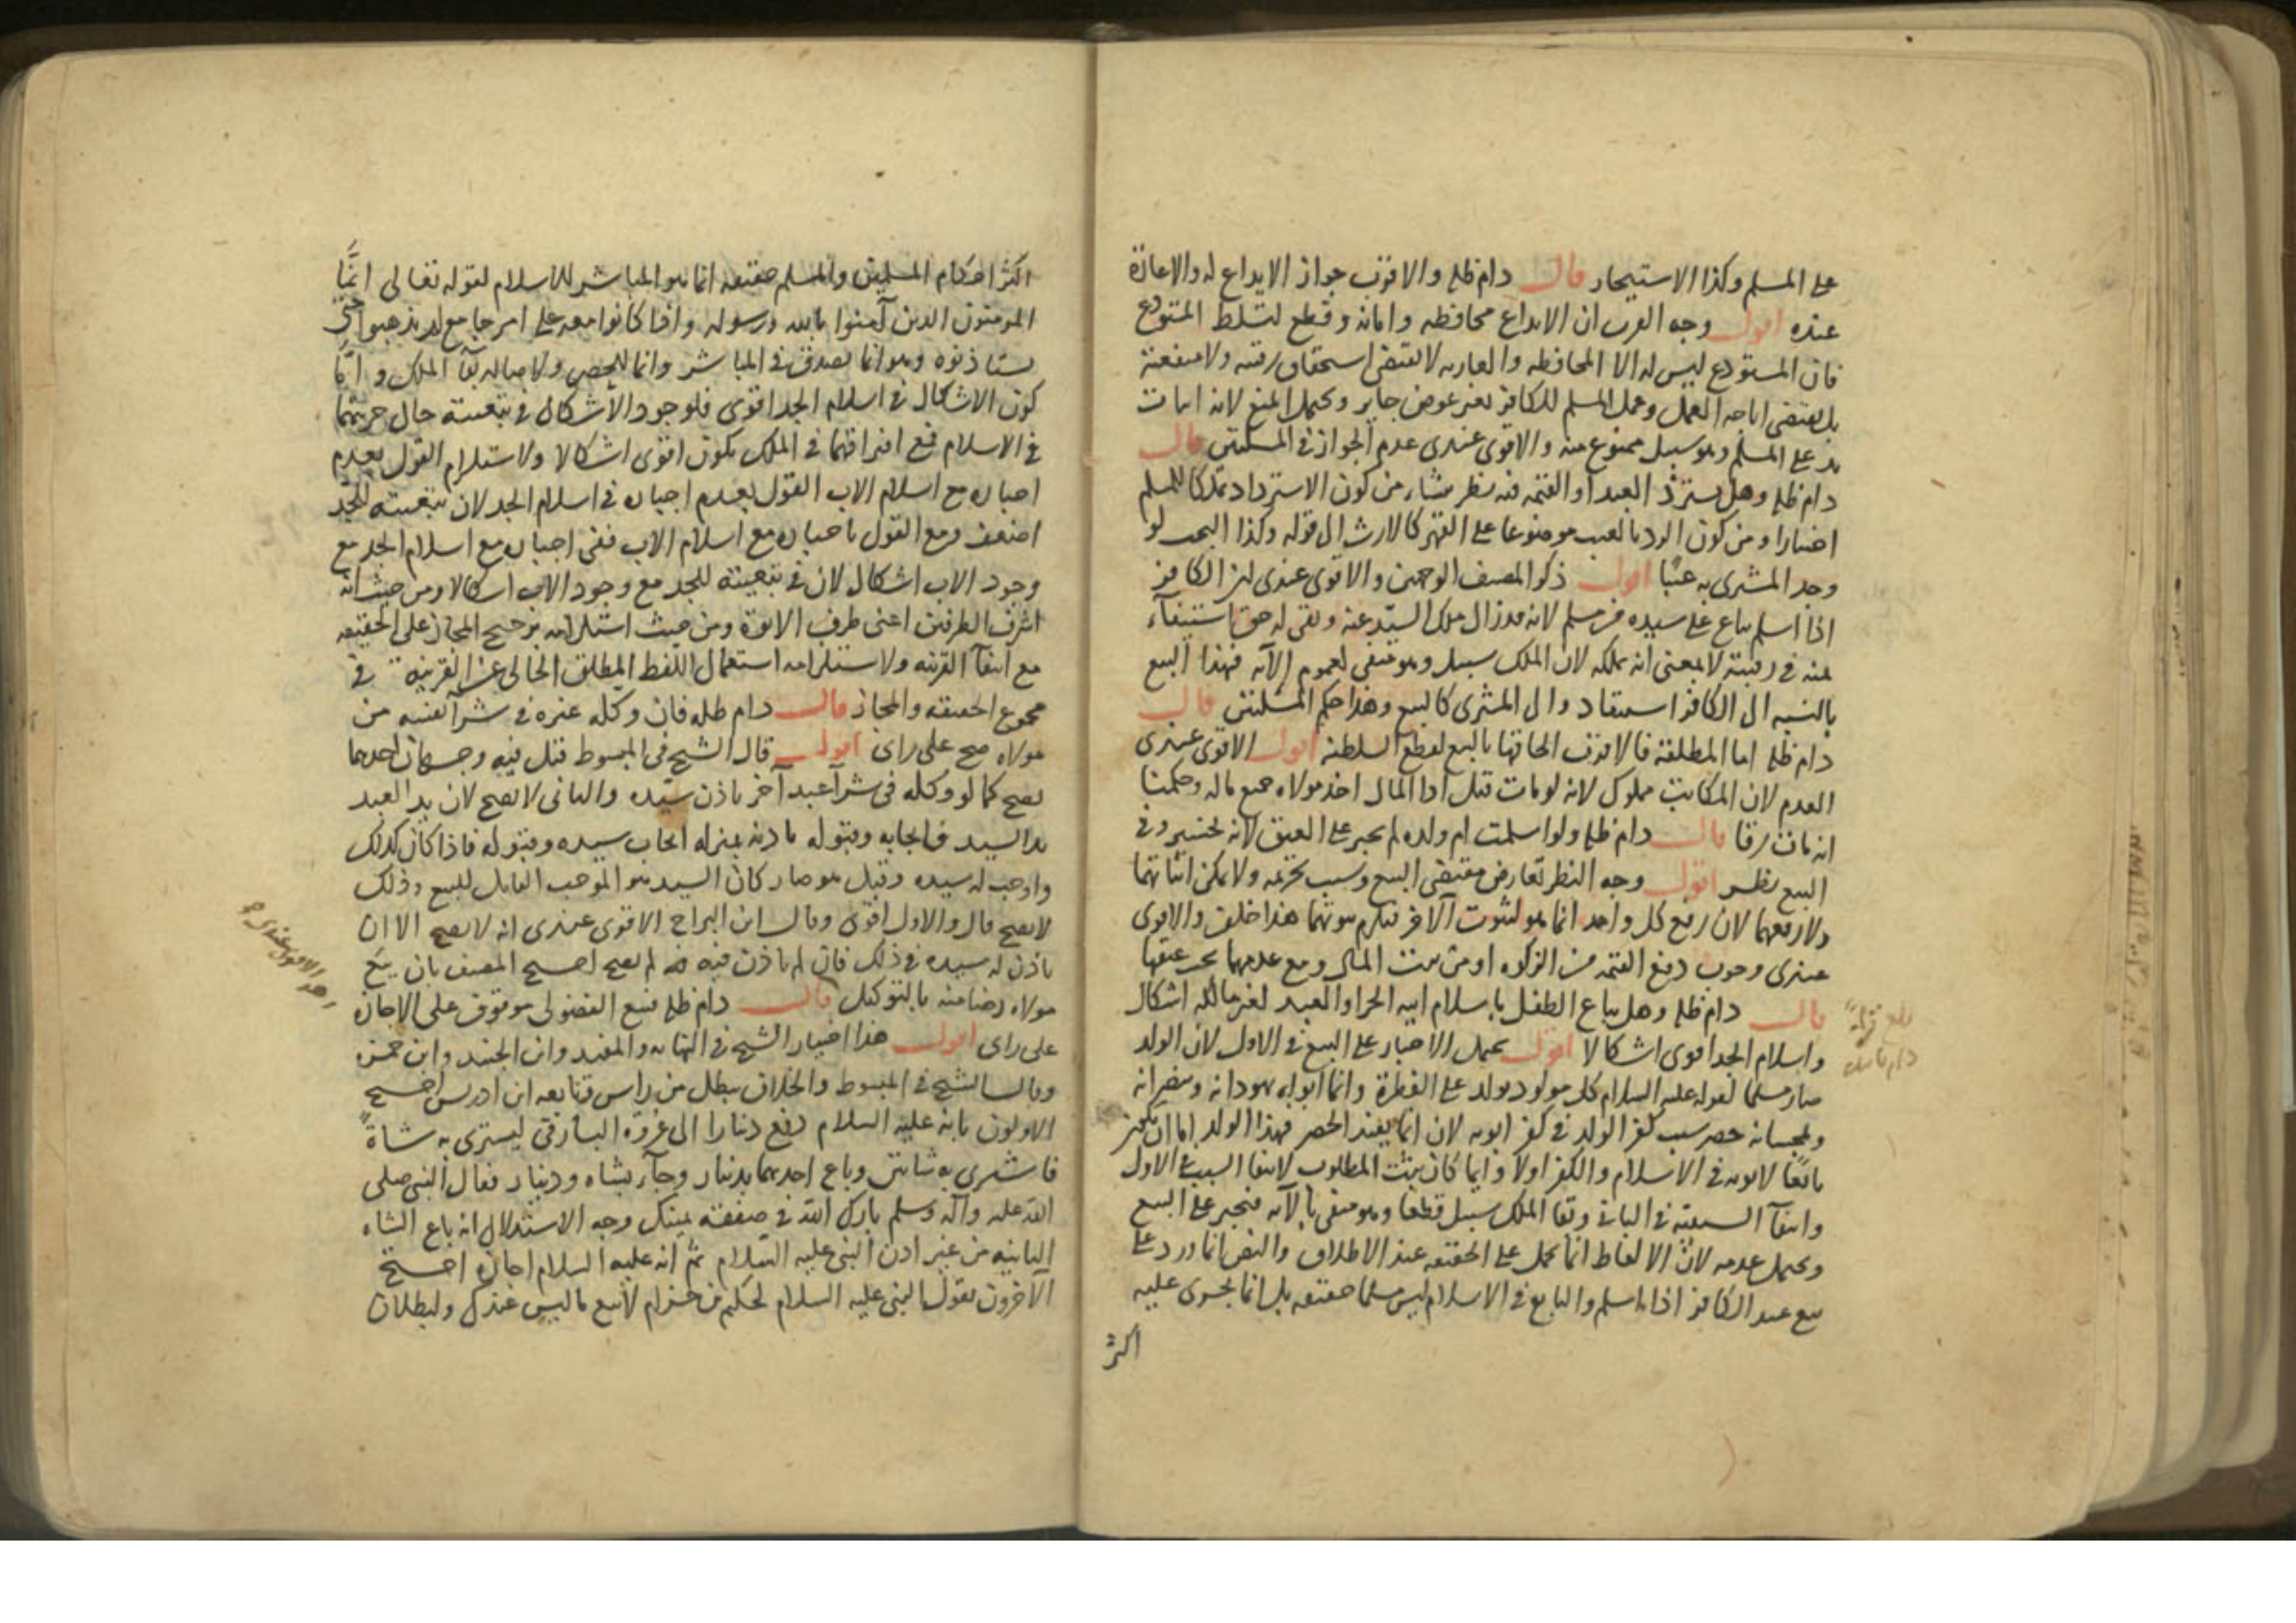 على المسلم وكذا الاستيجار قال دام ظله والاقرب جواز الايداع له والاعارة
عنده اقول وجه القرب ان الايداع محافظه وامانه وقطع لتسلط المستودع
فان المستودع ليس له الا المحافظه والعاريه لا تقتضى استحقاق رقبته ولا منفعته
بل تقتضى اباحه العمل وعمل المسلم للكافر بغير عوض جايز ويحتمل المنع لانه اثبات
يد على المسلم وهو سبيل ممنوع منه والاقوى عندى عدم الجواز في المسئلتين قال
دام ظله وهل يسترد العبد او القيمه فيه نظر ينشاء من كون الاسترداد تملكا للمسلم
اختيارا ومن كون الرد بالعيب موضوعا على القهر كالارث الى قوله وكذا البحث لو
وجد المشترى به عيبا اقول ذكر المصنف الوجهين والاقوى عندى ان الكافر
اذا اسلم يباع على سيده من مسلم لانه قد زال ملك السيد عنه وبقى له حق استيفاء
ثمنه في رقبته لا بمعنى انه يملكه لان الملك سبيل وهو منفى لعموم الآيه فهذا البيع
بالنسبه الى الكافر استنقاذ والى المشترى كالبيع وهذا حكم المسئلتين قال
دام ظله اما المطلقة فالاقرب الحاقها بالبيع لقطع السلطنة اقول الاقوى عندى
العدم لان المكاتب مملوك لانه لو مات قبل ادا المال اخذ مولاه جميع ماله وحكمنا
انه مات رقا قال دام ظله ولو اسلمت ام ولده لم يجبر على العتق لانه تخسير وفى
البيع نظر اقول وجه النظر تعارض مقتضى البيع وسبب تحريمه ولا يمكن اثباتهما
ولا رفعهما لان رفع كل واحد انما هو لثبوت الآخر فيلزم ثبوتهما هذا خلف والاقوى
عندى وجوب دفع القيمه من الزكاه او من بيت المال ومع عدمهما يجبر عتقها
قال دام ظله وهل يباع الطفل باسلام ابيه الحر او العبد لغير مالكه اشكال
واسلام الجد اقوى اشكالا اقول يحتمل الاجبار على البيع في الاول لان الولد
صار مسلما لقوله عليه السلام كل مولود يولد على الفطرة وانما ابواه يهودانه وينصرانه
ويمجسانه حصر سبب كفر الولد في كفر ابويه لان انما يفيد الحصر فهذا الولد اما ان يعتبر
تابعا لابويه في الاسلام والكفر اولا وايما كان يثبت المطلوب لانتفا السبب في الاول
وانتفآ السببيه في الثانى وبقا الملك سبيل قطعا وهو منفى بالآيه فيجبر على البيع
ويحتمل عدمه لان الالفاظ انما تحمل على الحقيقه عند الاطلاق والنص انما ورد على
بيع عبد الكافر اذا اسلم والتابع في الاسلام ليس مسلما حقيقه بل انما يجرى عليه
اكثر
بلغ قراءة
دام
اكثر احكام المسلمين والمسلم حقيقه انما هو المباشر للاسلام لقوله تعالى انما
المومنون الذين آمنوا بالله ورسوله واذا كانوا معه على امر جامع لم يذهبوا حتى
يستاذنوه وهو انما يصدق في المباشر وانما للحصر ولاصاله بقآ الملك و اما
كون الاشكال في اسلام الجد اقوى فلوجود الاشكال في تبعيته حال حريتهما
في الاسلام فمع افتراقهما في الملك يكون اقوى اشكالا ولاستلزام القول بعدم
اجباره مع اسلام الاب القول بعدم اجباره في اسلام الجد لان تبعيته للجد
اضعف ومع القول باجباره مع اسلام الاب ففى اجباره مع اسلام الجد مع
وجود الاب اشكال لان في تبعيته للجد مع وجود الاب اشكالا ومن حيث انه
اشرف الطرفين اعنى طرف الابوة ومن حيث استلزامه ترجيح المجاز على الحقيقه
مع انتفآ القرينه ولاستلزامه استعمال اللفظ المطلق الخالى عن القرينه في
مجموع الحقيقه والمجاز قال دام ظله فان وكله عنده في شرآ نفسه من
مولاه صح على راى اقول قال الشيخ فى المبسوط قيل فيه وجهان احدهما
يصح كما لو وكله فى شرآ عبد آخر باذن سيده والثانى لا يصح لان يد العبد
يد السيد فايجابه وقبوله باذنه بمنزله ايجاب سيده وقبوله فاذا كان كذلك
واوجب له سيده وقبل هو صار كان السيد هو الموجب القابل للبيع وذلك
لا يصح قال والاول اقوى وقال ابن البراج الاقوى عندى انه لا يصح الا ان
ياذن له سيده في ذلك فان لم ياذن فيه لم يصح احتج المصنف بان بيع
مولاه رضا منه بالتوكيل قال دام ظله فبيع الفضولى موقوف على الاجازه
على راى اقول هذا اختيار الشيخ في النهايه والمفيد وابن الجنيد وابن حمزه
وقال الشيخ في المبسوط والخلاف يبطل من راس وتابعه ابن ادريس احتج
الاولون بانه عليه السلام دفع دينارا الى عروة البارقى ليشترى به شاة
فاشترى به شاتين وباع احديهما بدينار وجآء بشاه ودينار فقال النبى صلى
الله عليه وآله وسلم بارك الله في صفقه يمينك وجه الاستدلال انه باع الشاه
الثانيه من غير اذن النبى عليه السلام ثم انه عليه السلام اجازه احتج
الآخرون بقول النبى عليه السلام لحكيم بن حزام لا تبع ما ليس عندك ولبطلان
وهو الاقوى عندى